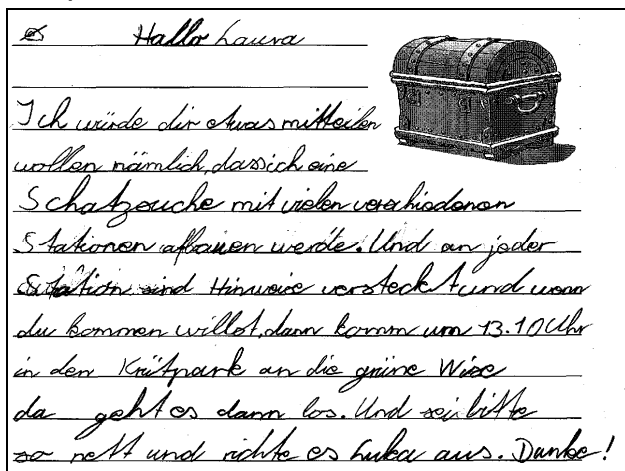 Hallo Laura
Ich würde dir etwas mitteilen
wollen nämlich, dass ich eine
Schatzsuche mit vielen verschiedenen
Stationen aufbauen werde. Und an jeder
Station sind Hinweise versteckt und wenn
du kommen willst, dann komm um 13.10 Uhr
in den an die grüne Wise
da geht es dann los. Und sei bitte
so nett und richte es Luka aus. Danke!